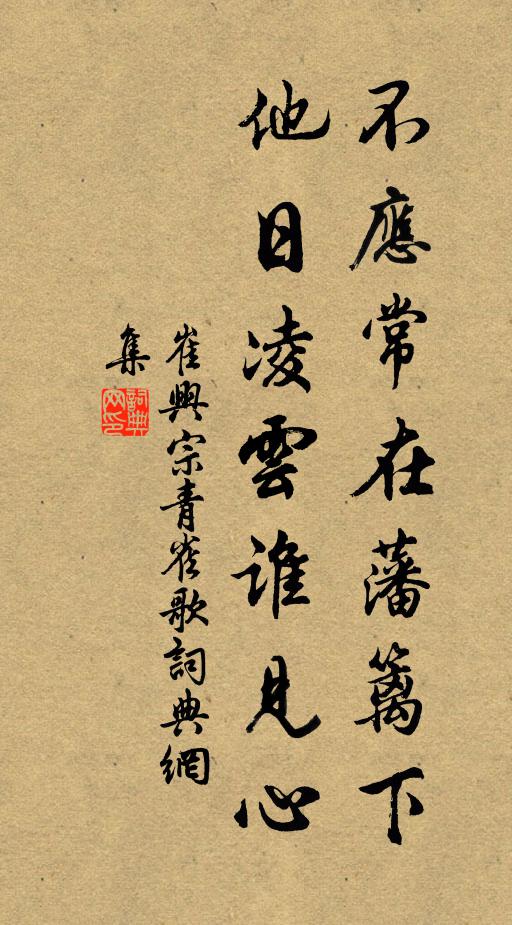 不應常在藩籬下
他日凌雲誰見心
崔興宗青雀歌詞典網
集
詞典
网印